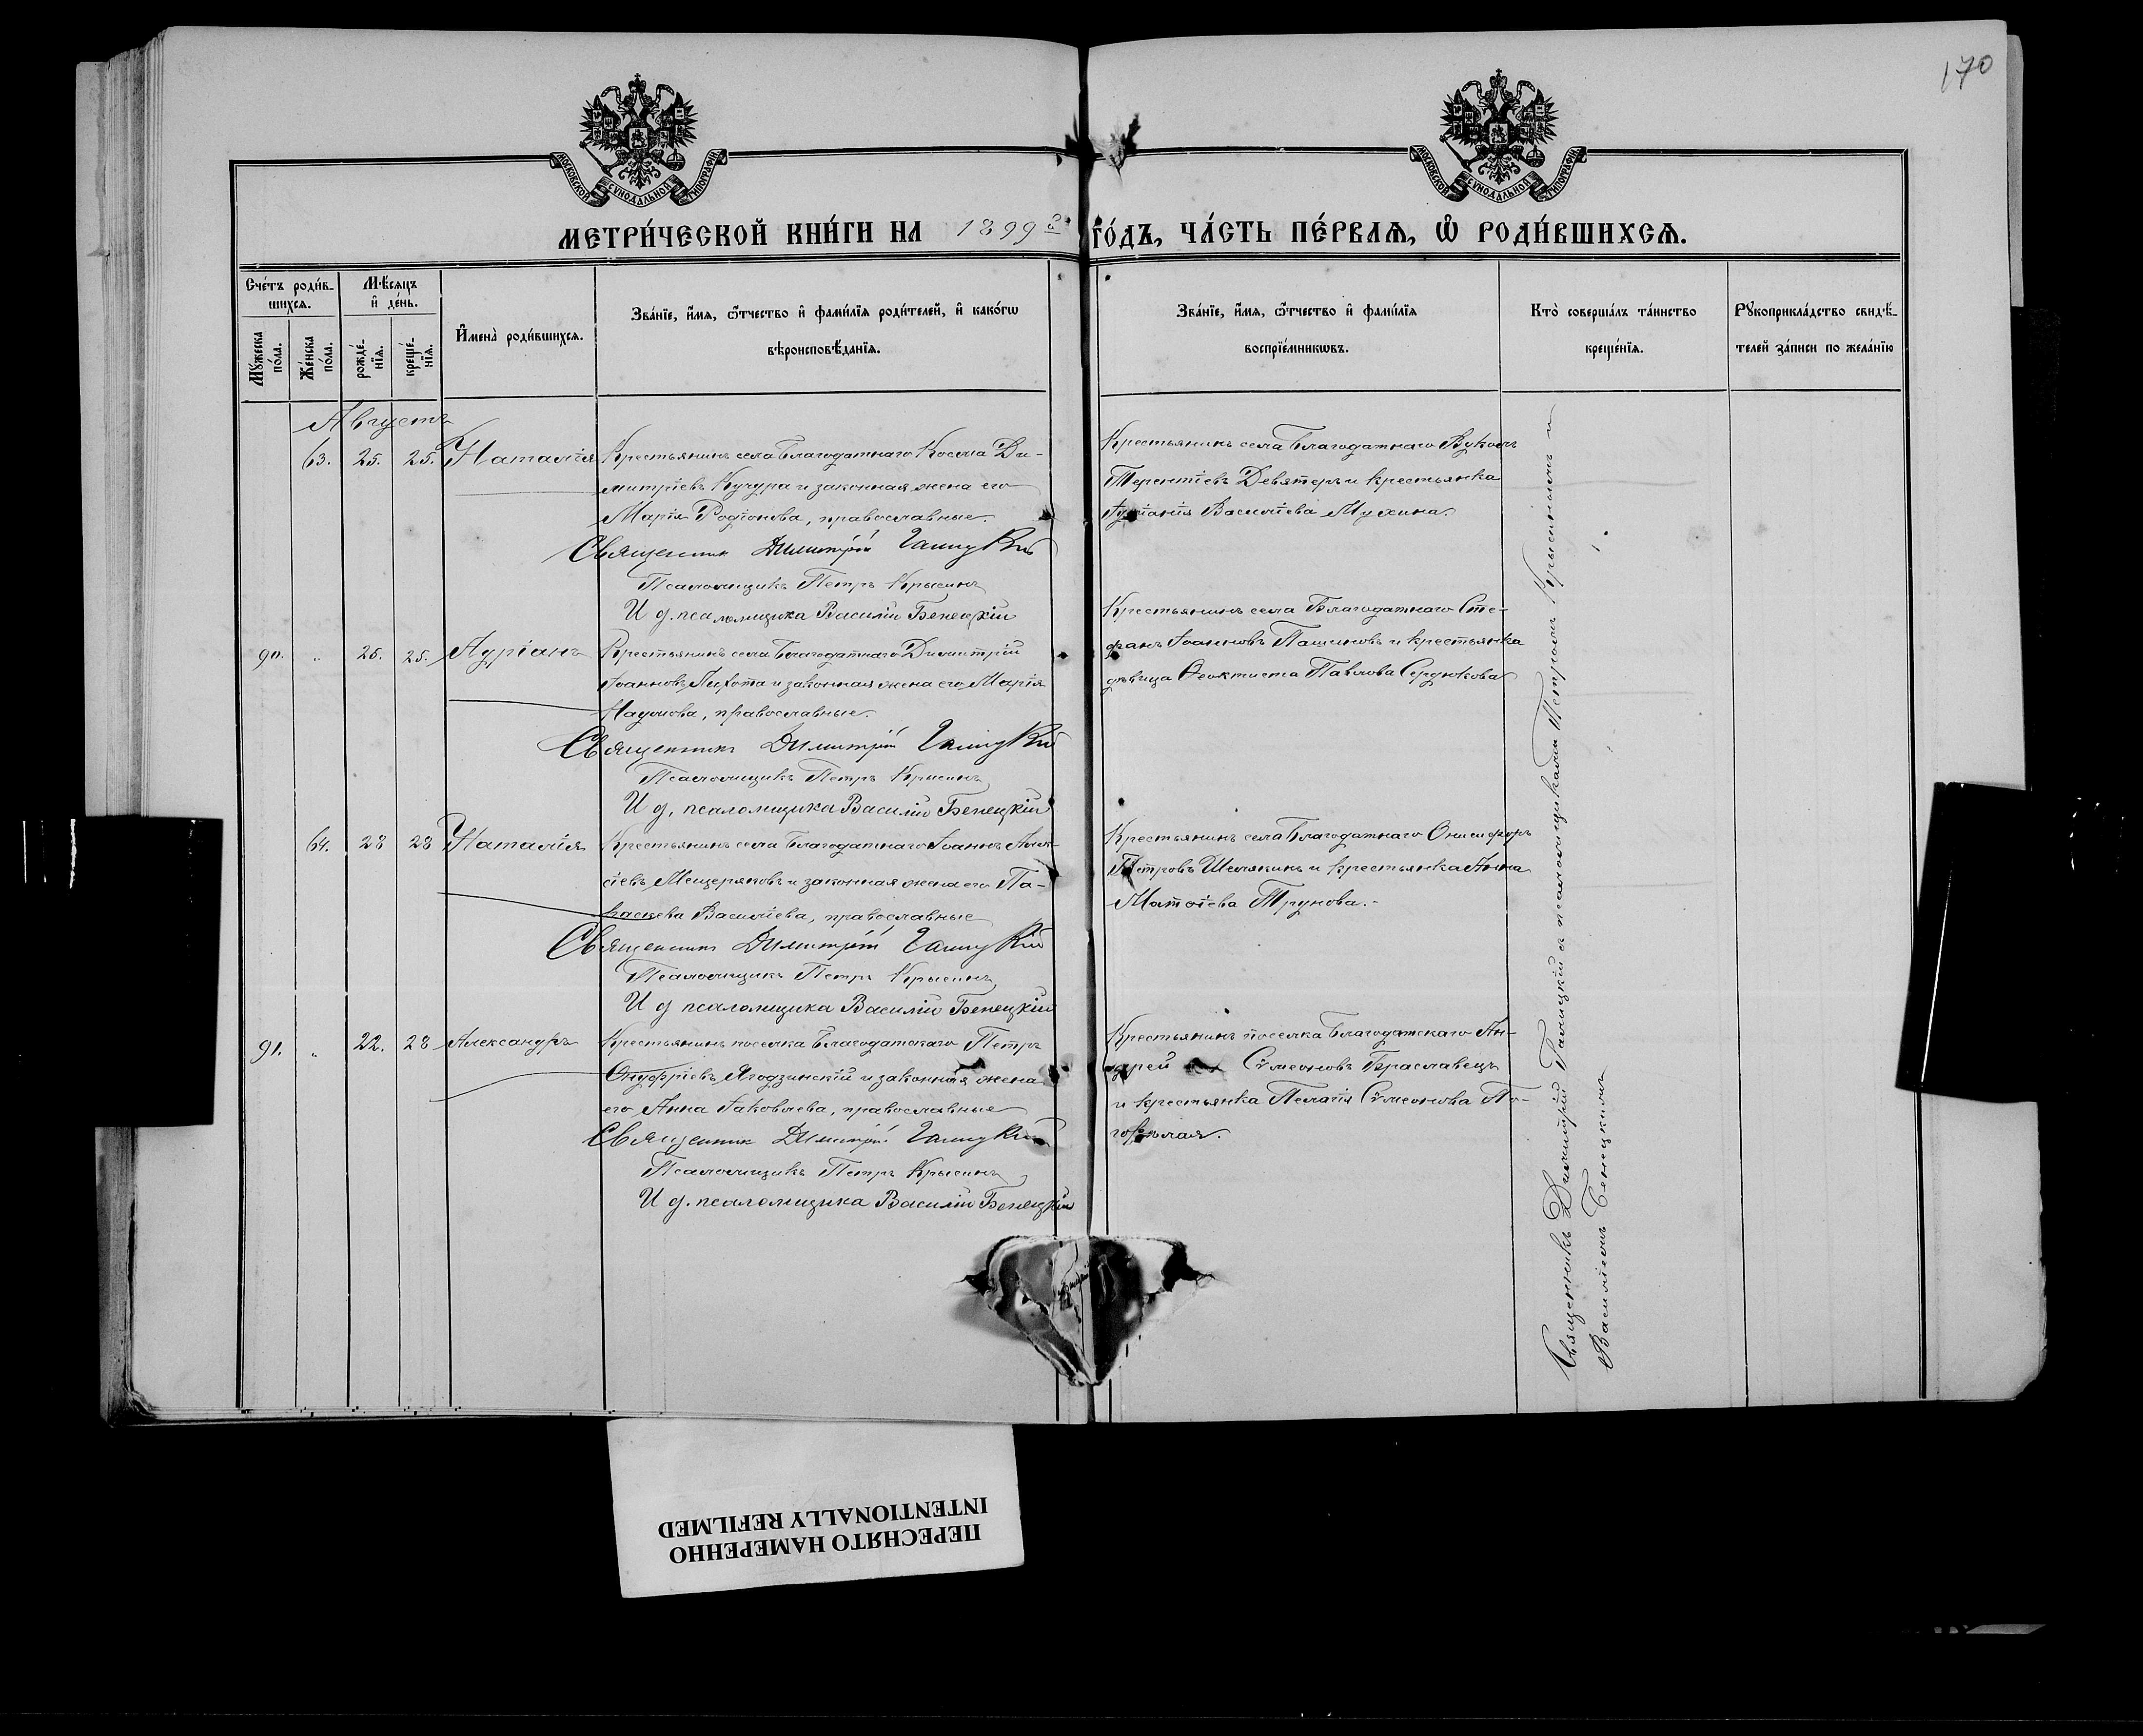 170
МОСКОВСКОЙ СѴНОДАЛЬНОЙ ТИПОГРАФІИ
МОСКОВСКОЙ СѴНОДАЛЬНОЙ ТИПОГРАФІИ
МЕТРИ́ЧЕСКОЙ КНИ́ГИ НА 1899й го́дъ, ЧА́СТЬ ПЕ́РВАѦ, Ѡ РОДИ́ВШИХСѦ.
Сче́тъ роди́в-
шихсѧ.
Мꙋ́жеска по́ла.
Же́нска по́ла.
Мѣсѧцъ
и҆ де́нь.
рожде́-
нїѧ.
креще́-
нїѧ.
И҆мена̀ роди́вшихсѧ.
Зва́нїе, и҆́мѧ, ѻ҆́тчество и҆ фами́лїѧ роди́телей, и҆ како́гѡ
вѣроисповѣ́данїѧ.
Зва́нїе, и҆́мѧ, ѻ҆́тчество и҆ фами́лїѧ
воспрїе́мникѡвъ.
Кто̀ соверша́лъ та́инство
креще́нїѧ.
Рꙋкоприкла́дство свидѣ́-
телей за́писи по жела́нїю
Августъ
63. 25. 25. Наталія Крестьянинъ села Благодатнаго Косьма Ди-
митріевъ Кучура и законная жена его
Марія Родіонова, православные.
Священник Димитрій Галицкій
Псаломщикъ Петръ Крысинъ
И д. псаломщика Василій Бенецкій
Крестьянинъ села Благодатнаго Вуколъ
Терентіевъ Девятеръ и крестьянка
Василіева Мухина.
90. " 25. 25. Адріанъ Крестьянинъ села Благодатнаго Димитрій
Іоанновъ Лихота и законная жена его Марія
Наумова, православные.
Священникъ Димитрій Галицкій
Псаломщикъ Петръ Крысинъ
И д. псаломщика Василій Бенецкій
Крестьянинъ села Благодатнаго Сте-
фанъ Іоанновъ Пашиновъ и крестьянка
дѣвица Ѳеоктиста Павлова Сердюкова
64. 28 28 Наталія Крестьянинъ села Благодатнаго Іоаннъ Алек-
сіевъ Мещеряковъ и законная жена его Па-
раскева Василіева, православные
Священникъ Димитрій Галицкій
Псаломщикъ Петръ Крысинъ
И д псаломщика Василій Бенецкій
Крестьянинъ села Благодатнаго Онисифоръ
Петровъ Шелякинъ и крестьянка Анна
Матѳіева Трунова.-
91. " 22. 28 Александръ Крестьянинъ поселка Благодатскаго Петръ
Онуфріевъ Ягодзинскій и законная жена
его Анна Іаковлева, православные
Священник Димитрій Галицкій
Псаломщикъ Петръ Крысинъ
И д. псаломщика Василій Бенецкій
Крестьянинъ поселка Благодатскаго Ан-
дрей Сѵмеоновъ Браславецъ
и крестьянка Пелагія Сѵмеонова По-
горѣлая.
Священникъ Димитрій Галицкій съ псаломщиками Петромъ Крысинымъ и
Василіемъ Бенецкимъ
ПЕРЕСНЯТО НАМЕРЕННО
INTENTIONALLY REFILMED